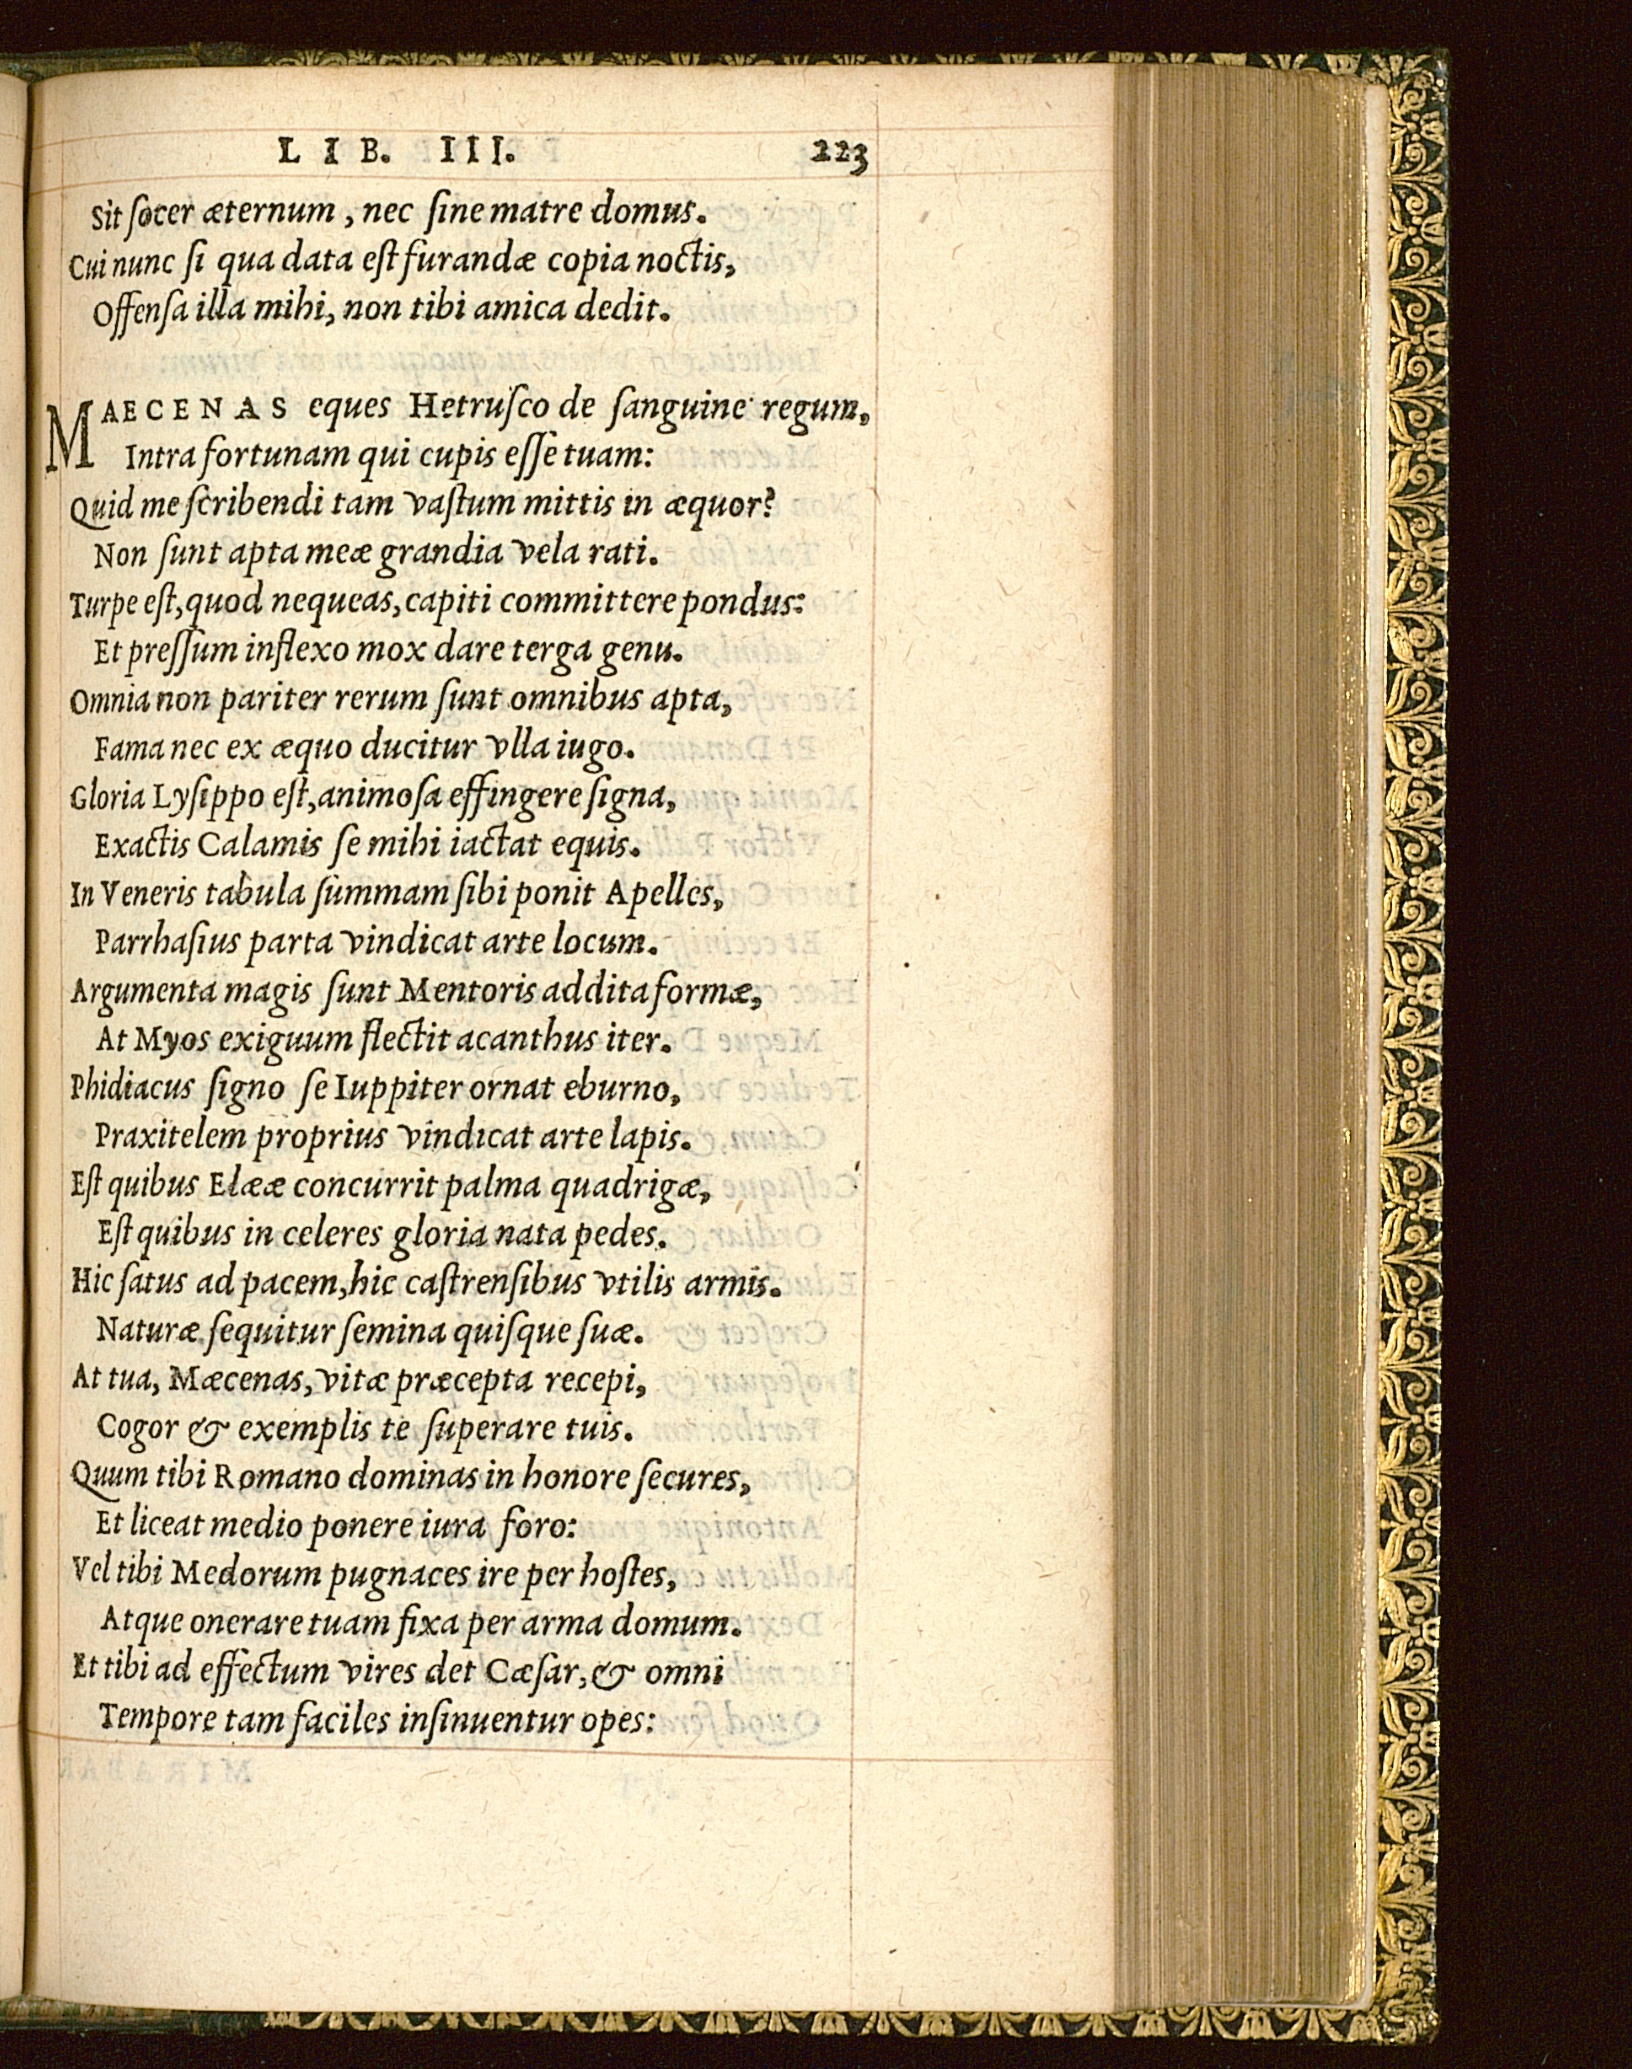 LIB. III. 223
Sit ſocer æternum, nec ſine matre domus.
Cui nunc ſi qua data eſt furandæ copia noctis,
Offenſa illa mihi, non tibi amica dedit.
MAECENAS eques Hetruſco de ſanguine regum,
Intra fortunam qui cupis eſſe tuam:
Quid me ſcribendi tam vaſtum mittis in æquor?
Non ſunt apta meæ grandia vela rati.
Turpe eſt, quod nequeas, capiti committere pondus:
Et preſſum inflexo mox dare terga genu.
Omnia non pariter rerum ſunt omnibus apta,
Fama nec ex æquo ducitur vlla iugo.
Gloria Lyſippo eſt, animoſa effingere ſigna,
Exactis Calamis ſe mihi iactat equis.
In Veneris tabula ſummam ſibi ponit Apelles,
Parrhaſius parta vindicat arte locum.
Argumenta magis ſunt Mentoris addita formæ,
At Myos exiguum flectit acanthus iter.
Phidiacus ſigno ſe Iuppiter ornat eburno,
Praxitelem proprius vindicat arte lapis.
Eſt quibus Elææ concurrit palma quadrigæ,
Eſt quibus in celeres gloria nata pedes.
Hic ſatus ad pacem, hic caſtrenſibus vtilis armis.
Naturæ ſequitur ſemina quiſque ſuæ.
At tua, Mæcenas, vitæ præcepta recepi,
Cogor & exemplis te ſuperare tuis.
Quum tibi Romano dominas in honore ſecures,
Et liceat medio ponere iura foro:
Vel tibi Medorum pugnaces ire per hoſtes,
Atque onerare tuam fixa per arma domum.
Et tibi ad effectum vires det Cæſar, & omni
Tempore tam faciles inſinuentur opes: